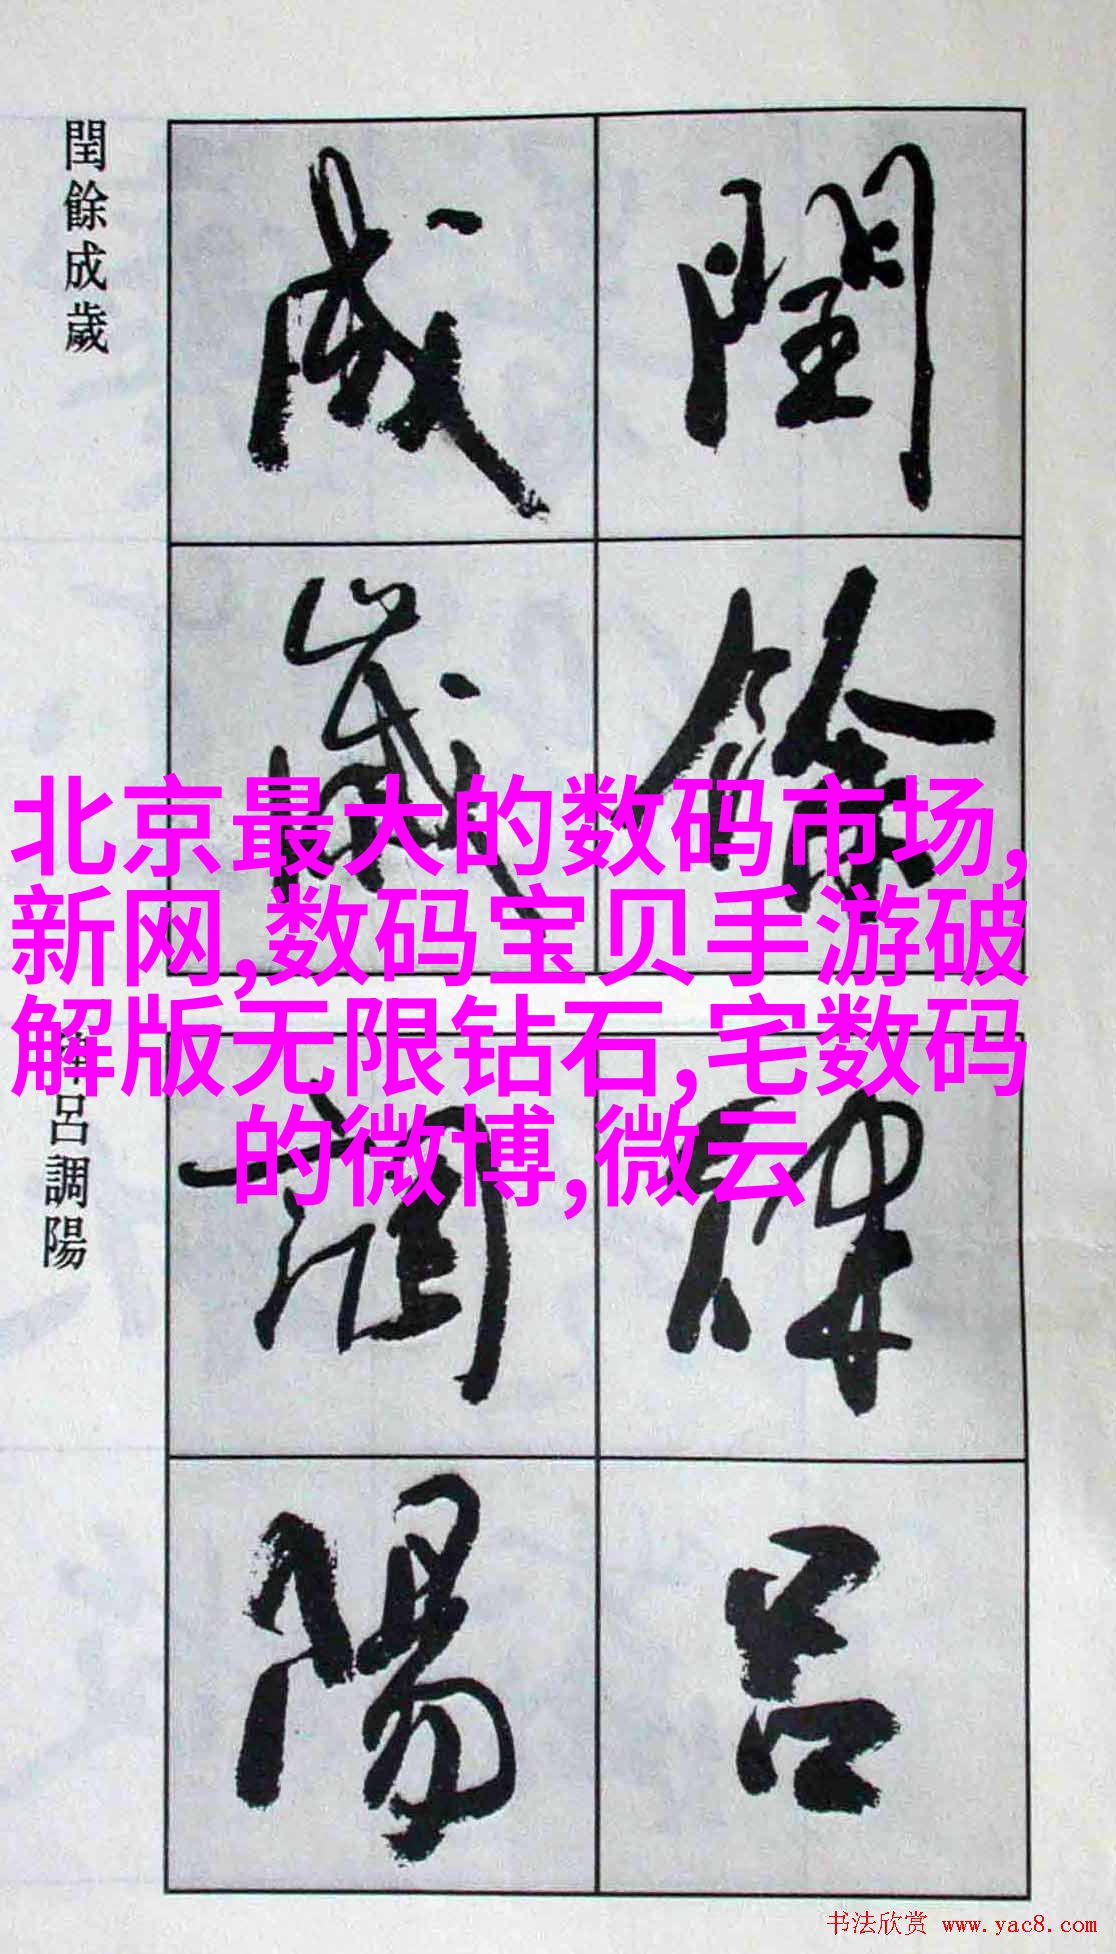 閏餘成歲
閏餘
成歲
北京最大的数码市场,
新网,数码宝贝手游破
解版无限钻石,宅数码
的微博,微云
律呂調陽
律呂
調陽
书法欣赏 www.yac8.com